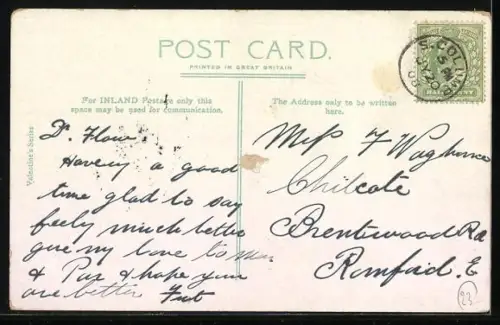 POST CARD.
PRINTED IN GREAT BRITAIN
For INLAND Postage only this
space may be used for communication.
The Address only to be written
here.
Valentine's Series
D. Flow.
Having a good
time glad to say
feeling much better
give my love to Mar
& Pa & hope your
are better
Miss F Waghorne
Chilcote
Brentwood Rd
Romford. E
S. COLUMB
HALFPENNY
23